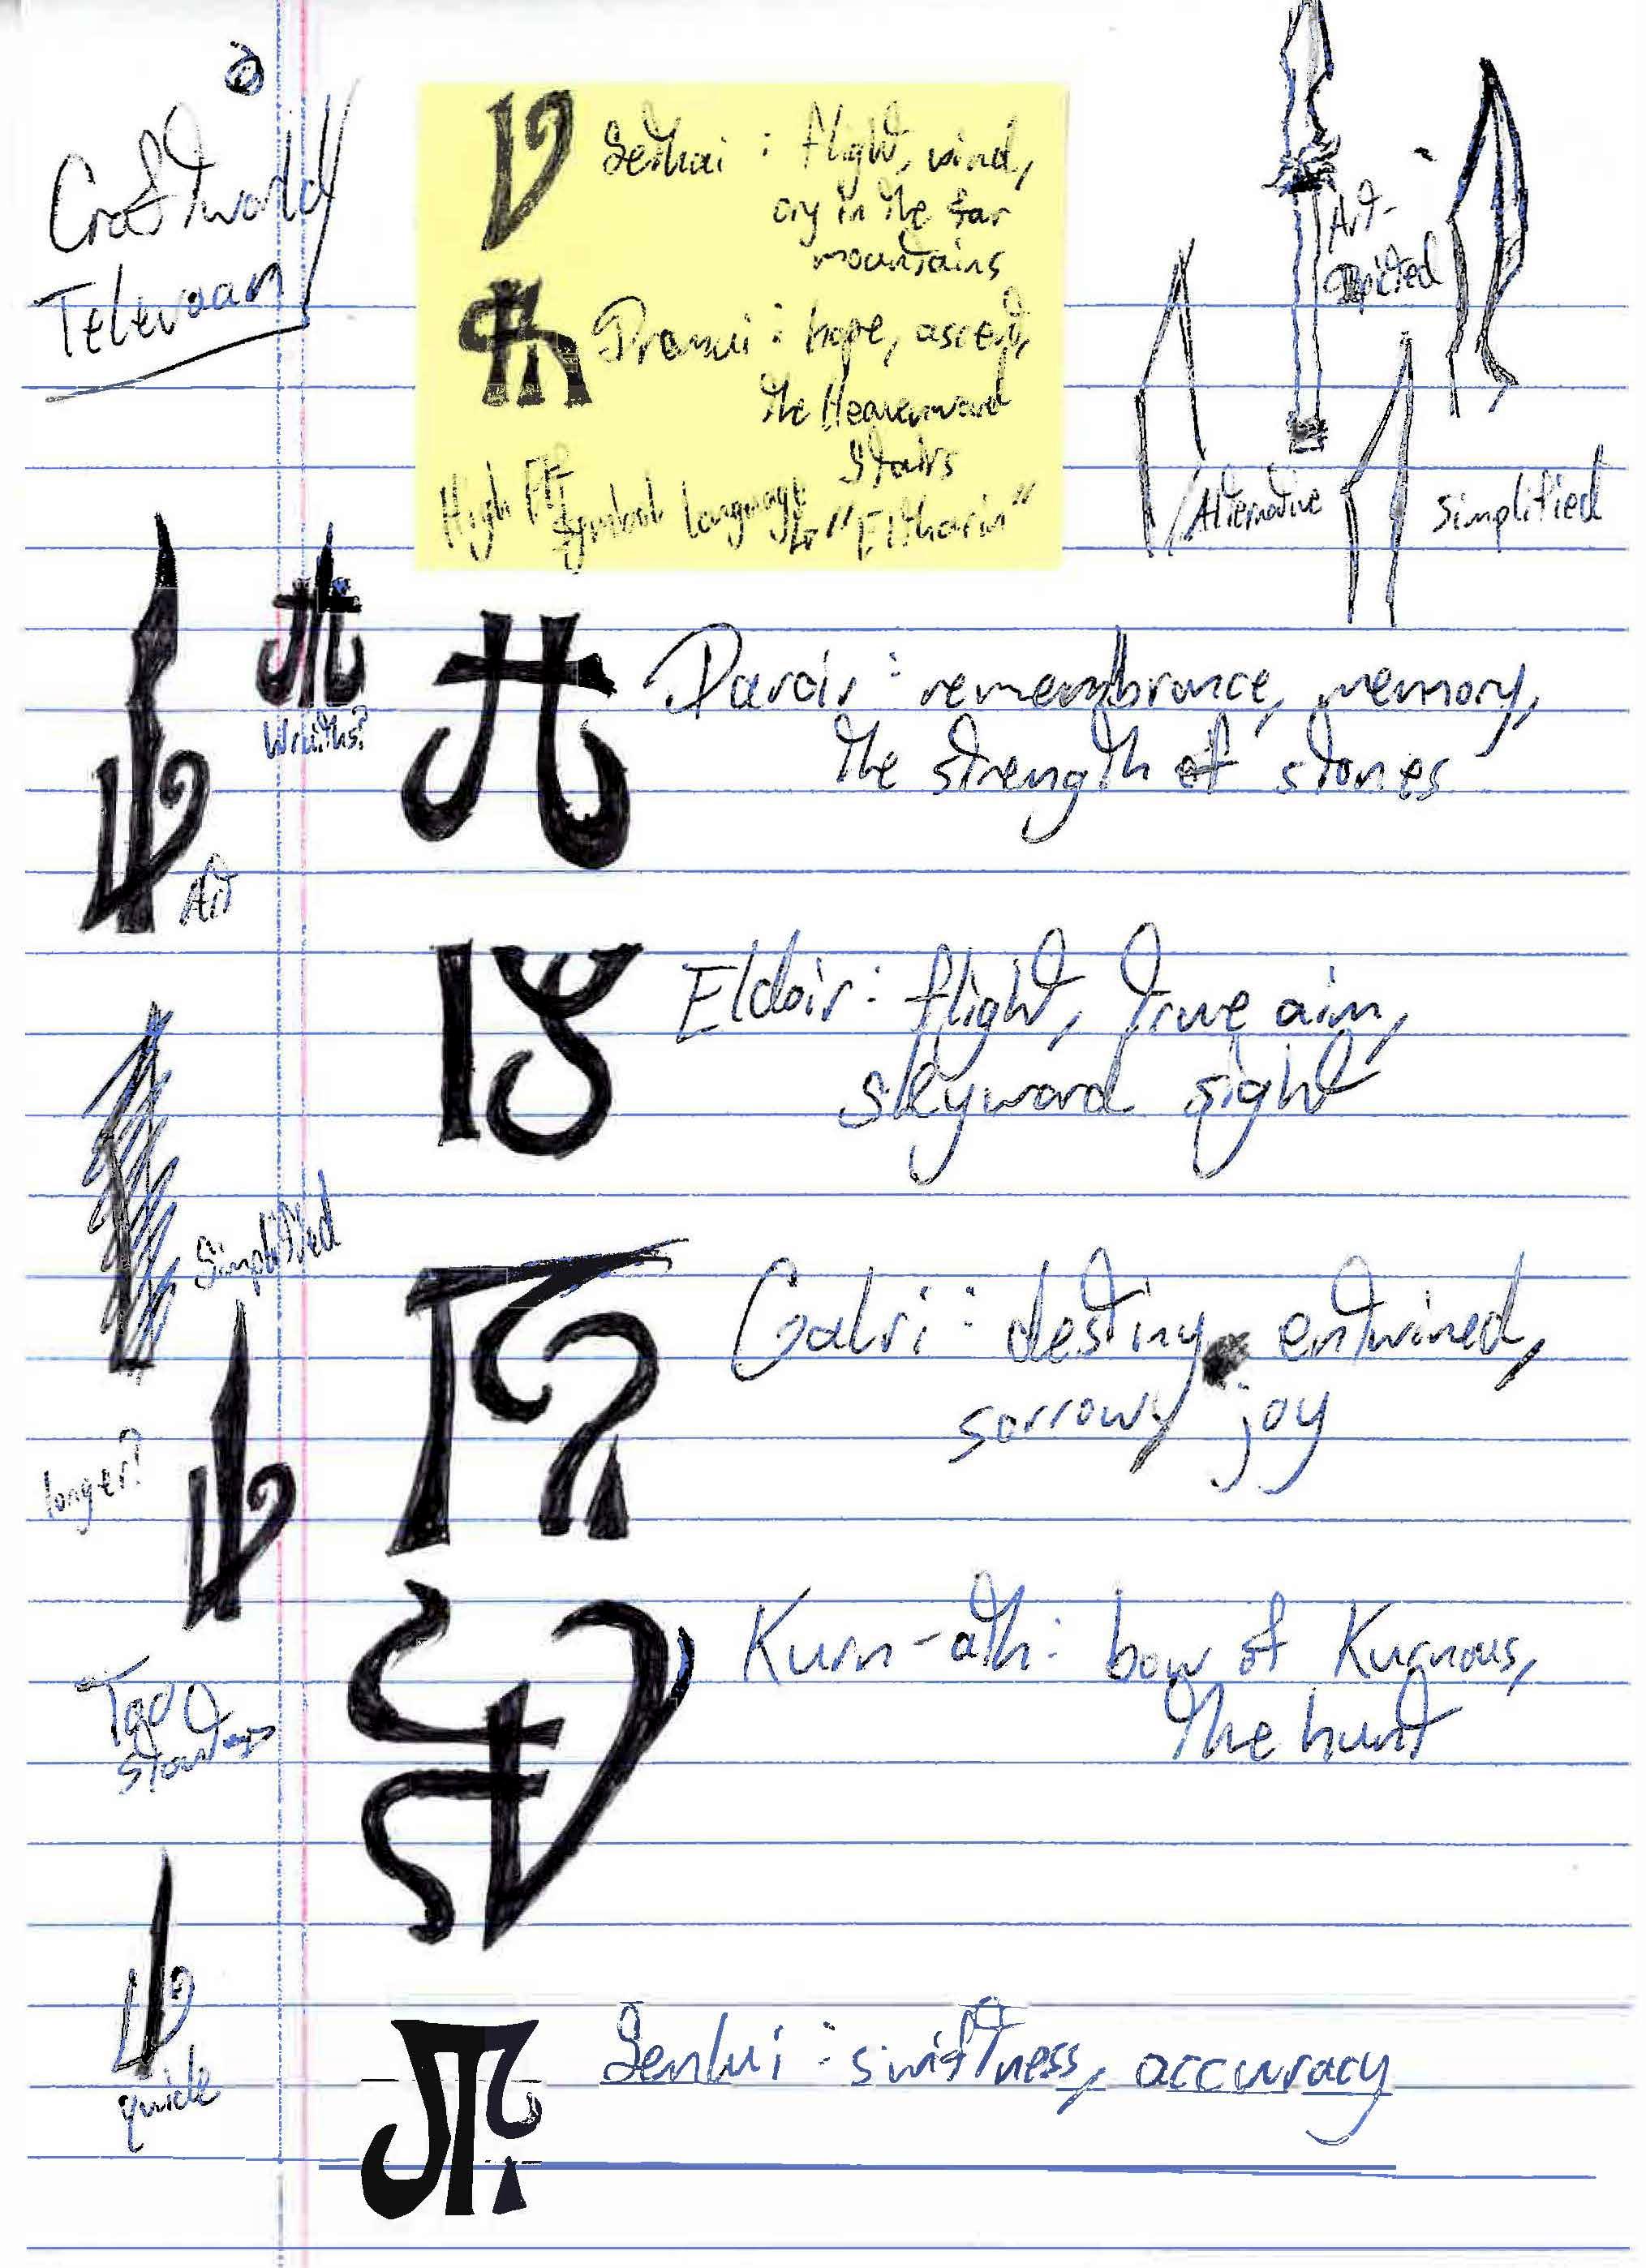 Craftworld
Televaan
Senhai : flight, wind,
cry in the far
mountains
Dramui : hope, ascent,
the Heavenward
Stairs
High Elf
Symbol Language
"Eltharin"
Art-
depicted
Alternative
Simplified
Wraiths?
Daroir : remembrance, memory,
the strength of stones
Art
Eldoir : flight, true aim,
skyward sight
Simplified
Galri : destiny entwined,
sorrow joy
longer?
Kurn-ath : bow of Kurnous,
the hunt
Too
quick
Senlui : swiftness, accuracy